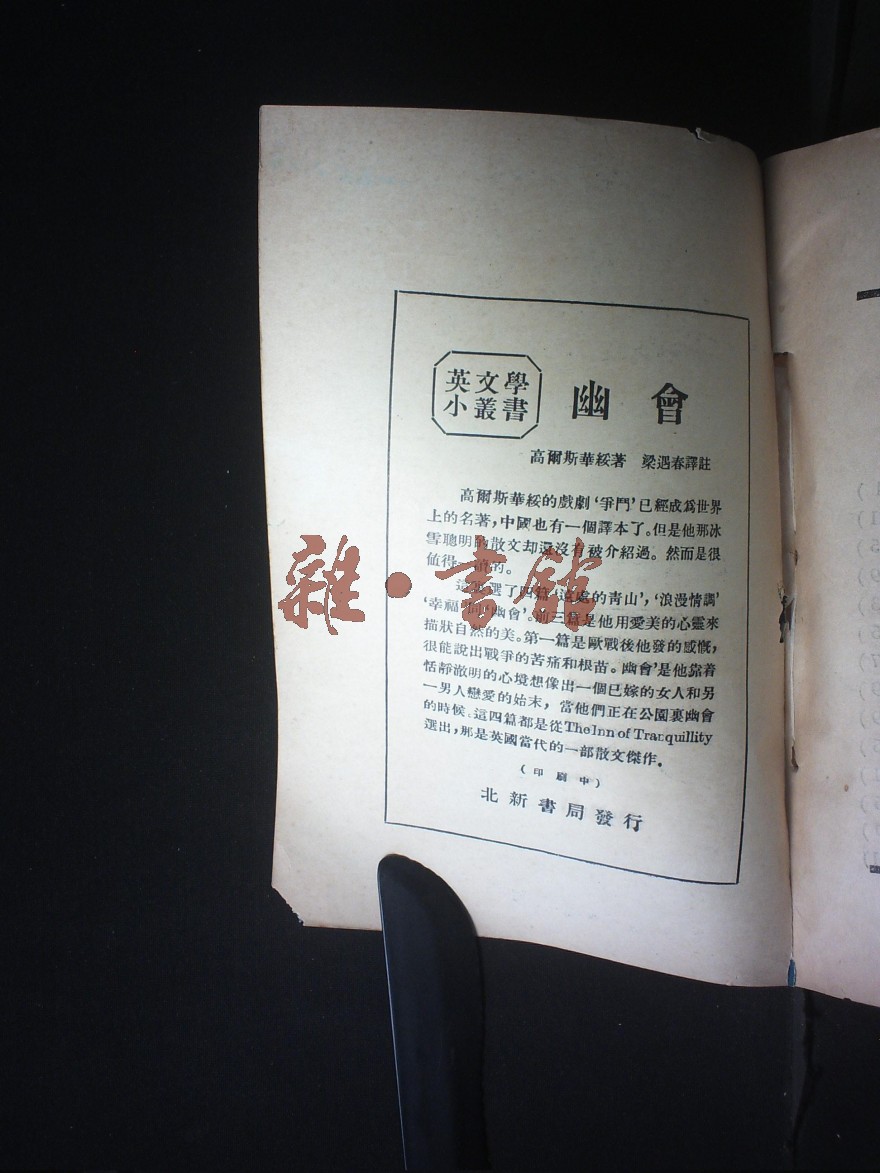 英文學
小叢書
幽會
高爾斯華綏著 梁遇春譯註
高爾斯華綏的戲劇‘爭鬥’已經成爲世界
上的名著，中國也有一個譯本了。但是他那冰
雪聰明的散文却還沒有被介紹過。然而是很
値得一讀的。
這裏選了四篇‘遠處的靑山’，‘浪漫情調’
‘幸福’同‘幽會’。前三篇是他用愛美的心靈來
描狀自然的美。第一篇是歐戰後他發的感慨，
很能說出戰爭的苦痛和根苗。幽會’是他靠着
恬靜澈明的心境想像出一個已嫁的女人和另
一男人戀愛的始末，當他們正在公園裏幽會
的時候。這四篇都是從The Inn of Tranquillity
選出，那是英國當代的一部散文傑作。
（印刷中）
北新書局發行
雜·書館